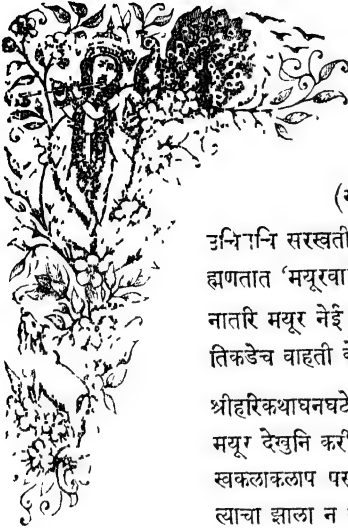 सरस्वती
ह्मणतात ‘मयूरवा
नातरि मयूर नेई
तिकडेच वाहती
श्रीहरिकथाघनघटे
मयूर देखुनि करी
स्वकलाकलाप पस
त्याचा झाला न